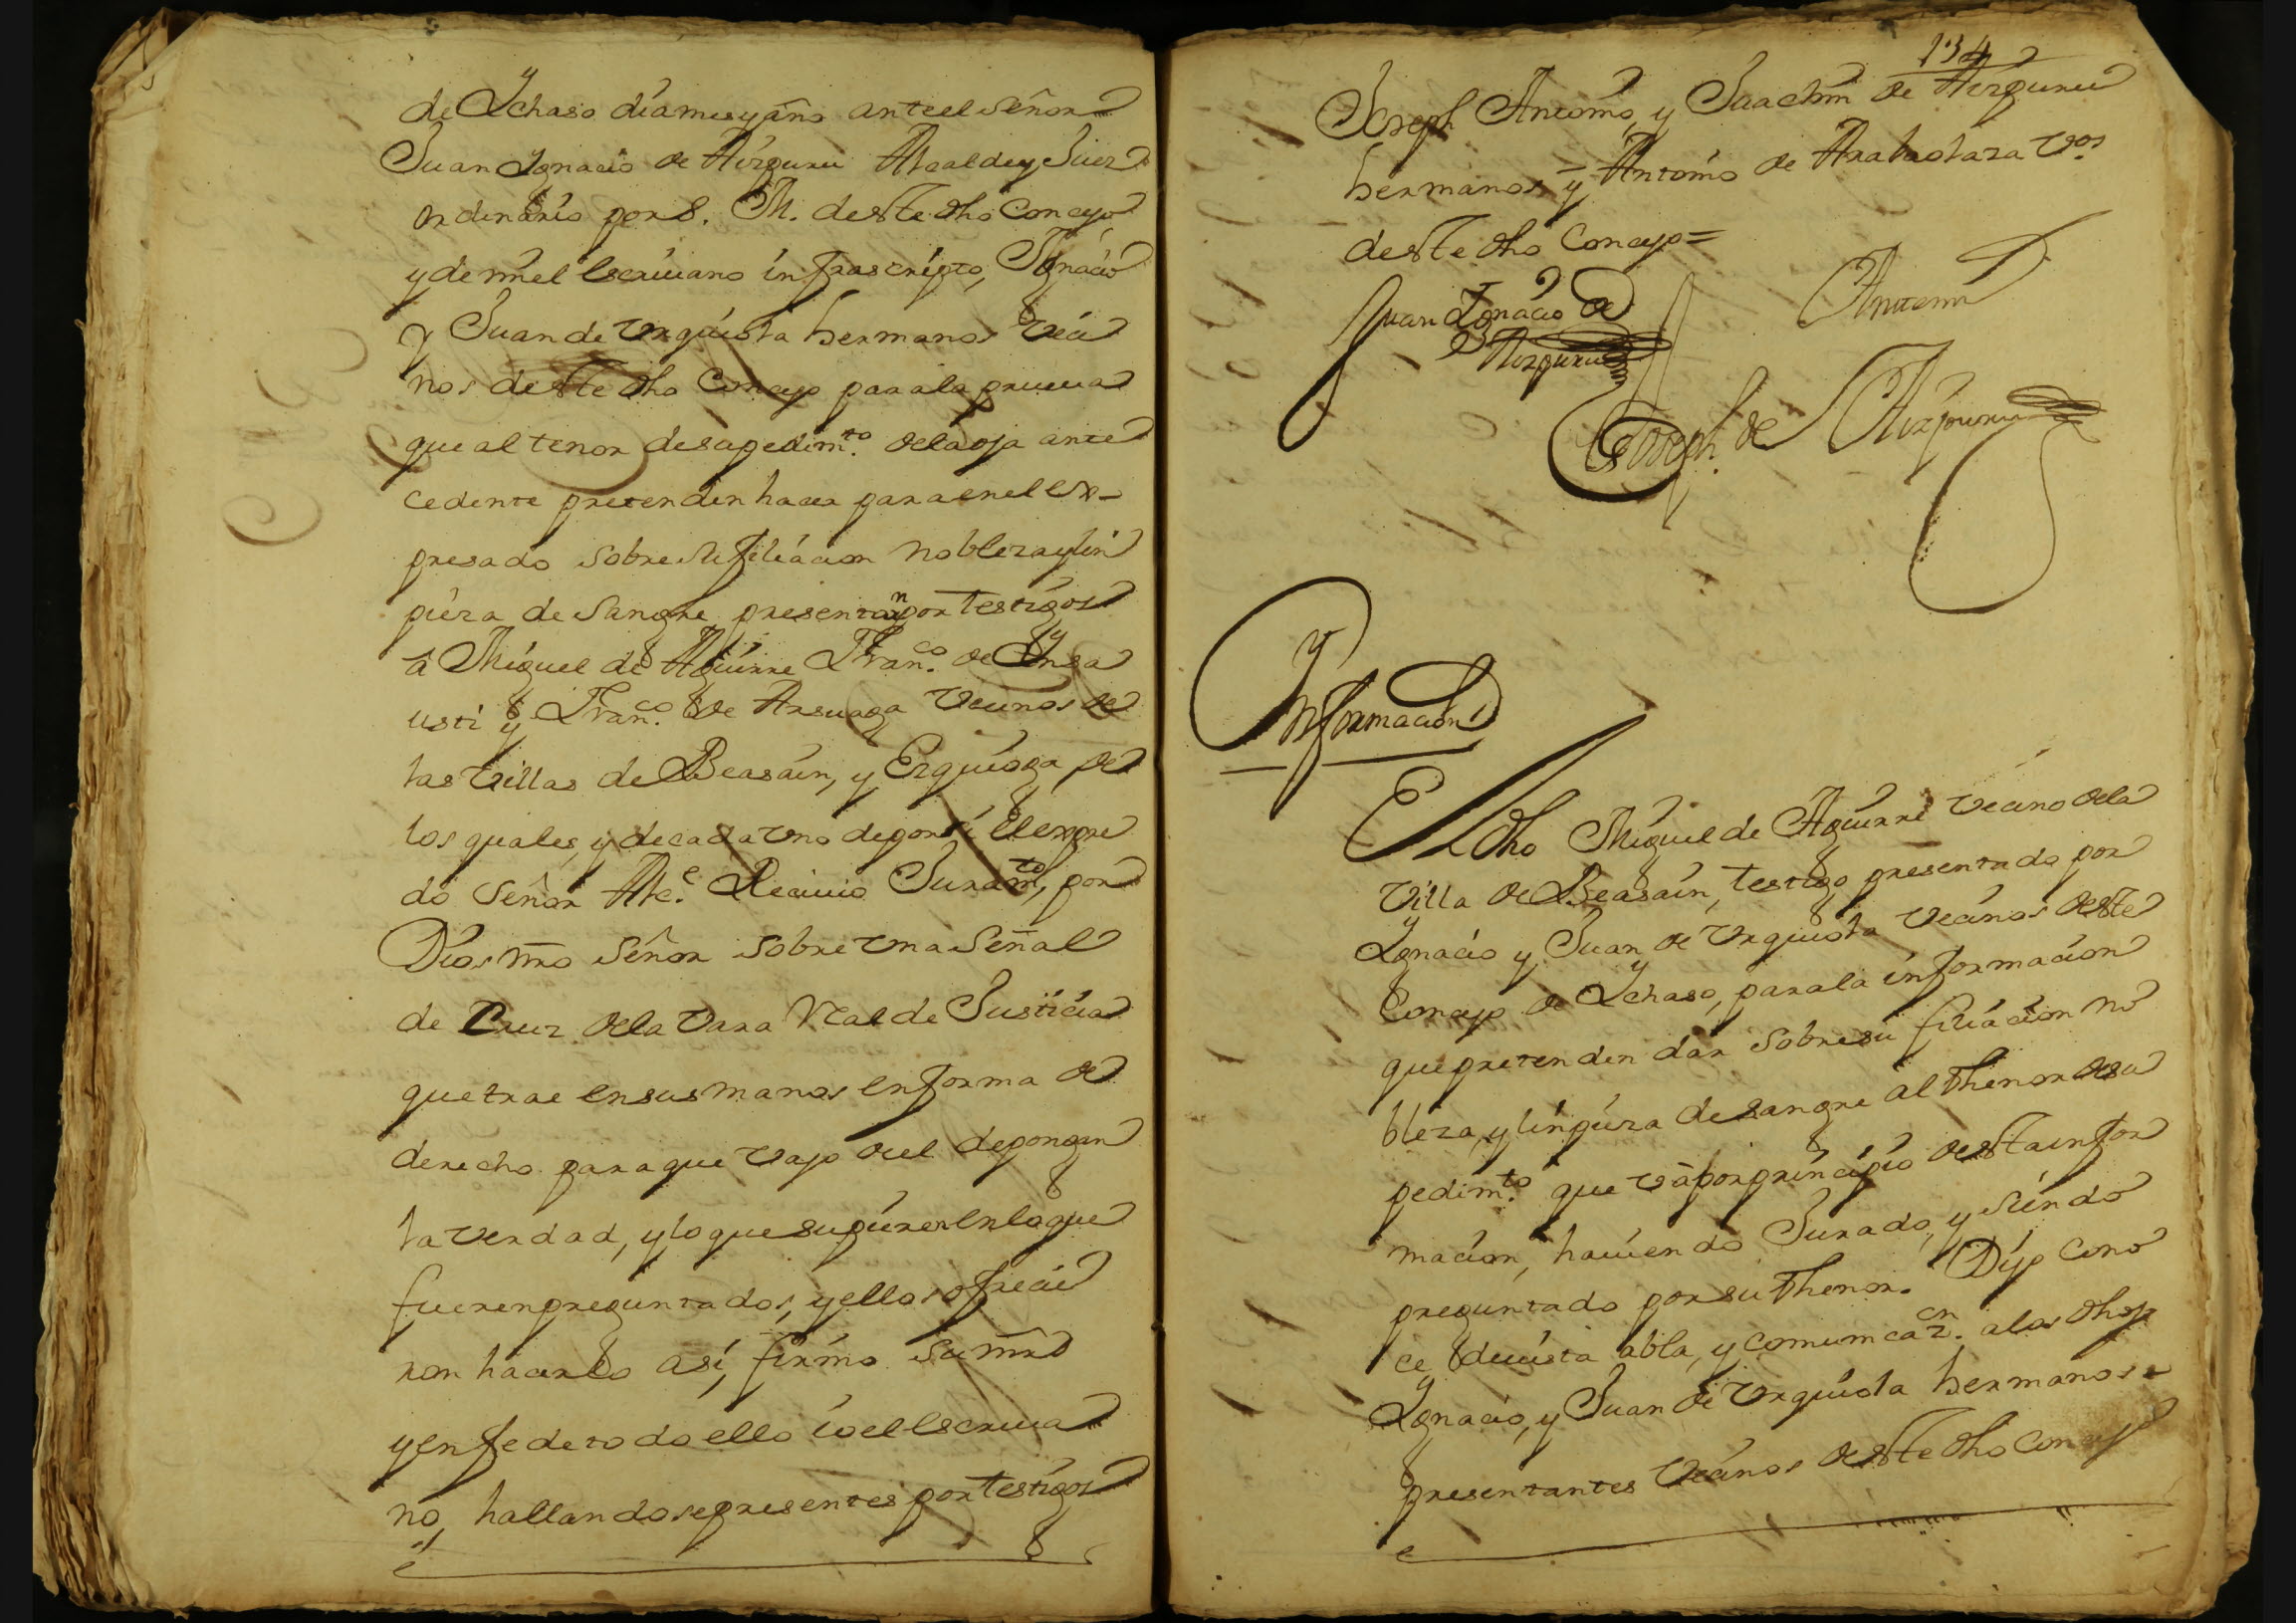 de Ychaso dia mes y año ante el Señor
Juan Ygnacio de Aizpuru Alcalde y Juez
ordinario por S. M. deste dho Concejo
y de mi el Escrivano infrascripto, Ygnacio
y Juan de Urquiola hermanos veci
nos deste dho Concejo para la prueva
que al tenor de su pedim.to de la oja ante
cedente pretenden hacer para en el ex-
presado sobre su filiacion nobleza y lim
pieza de Sangre presentan por testigos
â Miguel de Aguirre Fran.co de Ynsa
usti y Fran.co de Arsuaga vecinos de
las Villas de Beasain, y Ezquioga de
los quales, y de cada uno de por si el expre
do Señor Alc.e Recivio Juram.to, por
Dios nro Señor sobre una Señal
de Cruz de la Vara Real de Justicia
que trae en sus manos en forma de
derecho para que vajo del depongan
la verdad, y lo que supieren en lo que
fueren preguntados, y ellos ofrecie
ron hacerlo asi, firmo su mrd
y en fe de todo ello io el Escriva
no, hallandose presentes por testigos
134
Joseph Antonio, y Juachin de Aizpuru
hermanos y Antonio de Arabaolaza v.os
deste dho Concejo =
Juan Ygnacio de
Aizpuru
Antemi
Joseph de Aizpuru
Ynformacion
El dho Miguel de Aguirre vecino de la
Villa de Beasain, testigo presentado por
Ygnacio y Juan de Urquiola vecinos deste
Concejo de Ychaso, para la informacion
que pretenden dar sobre su filiacion no
bleza, y limpieza de sangre al thenor de su
pedim.to que va por principio desta infor
macion, haviendo Jurado, y siendo
preguntado por su thenor. Dijo Cono
ce de vista abla, y comunicaz.on a los dhos
Ygnacio, y Juan de Urquiola hermanos
presentantes vecinos deste dho Concejo